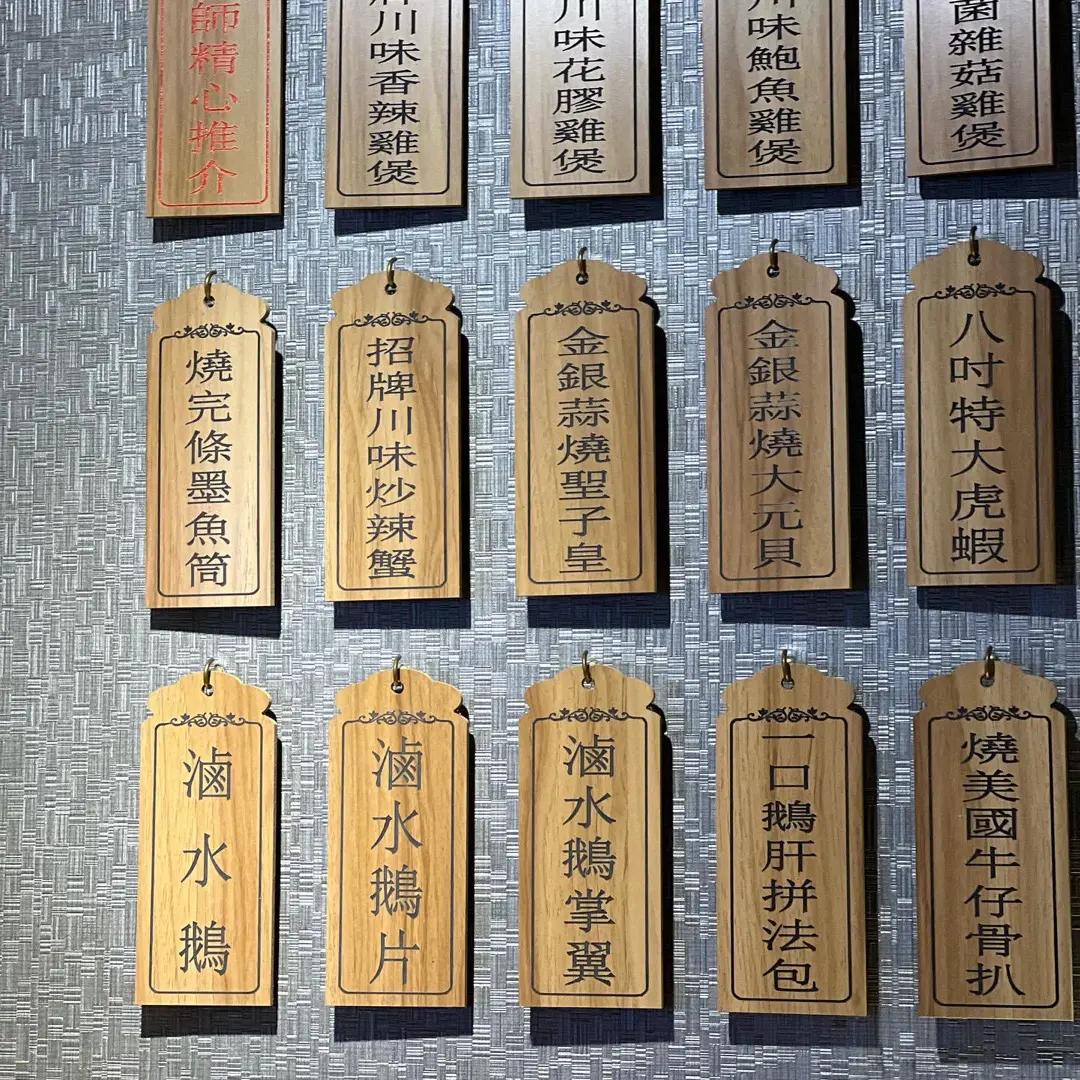 師精心推介
川味香辣雞煲
川味花膠雞煲
味鮑魚雞煲
菌雜菇雞煲
燒完條墨魚筒
招牌川味炒辣蟹
金銀蒜燒聖子皇
金銀蒜燒大元貝
八吋特大虎蝦
滷水鵝
滷水鵝片
滷水鵝掌翼
一口鵝肝拼法包
燒美國牛仔骨扒